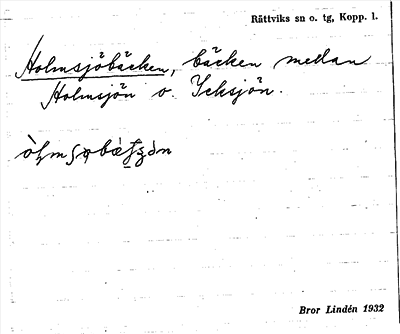 Rättviks sn o. tg, Kopp. l.
Holmsjöbäcken, bäcken mellan
Holmsjön o. Icksjön.
Bror Lindén 1932